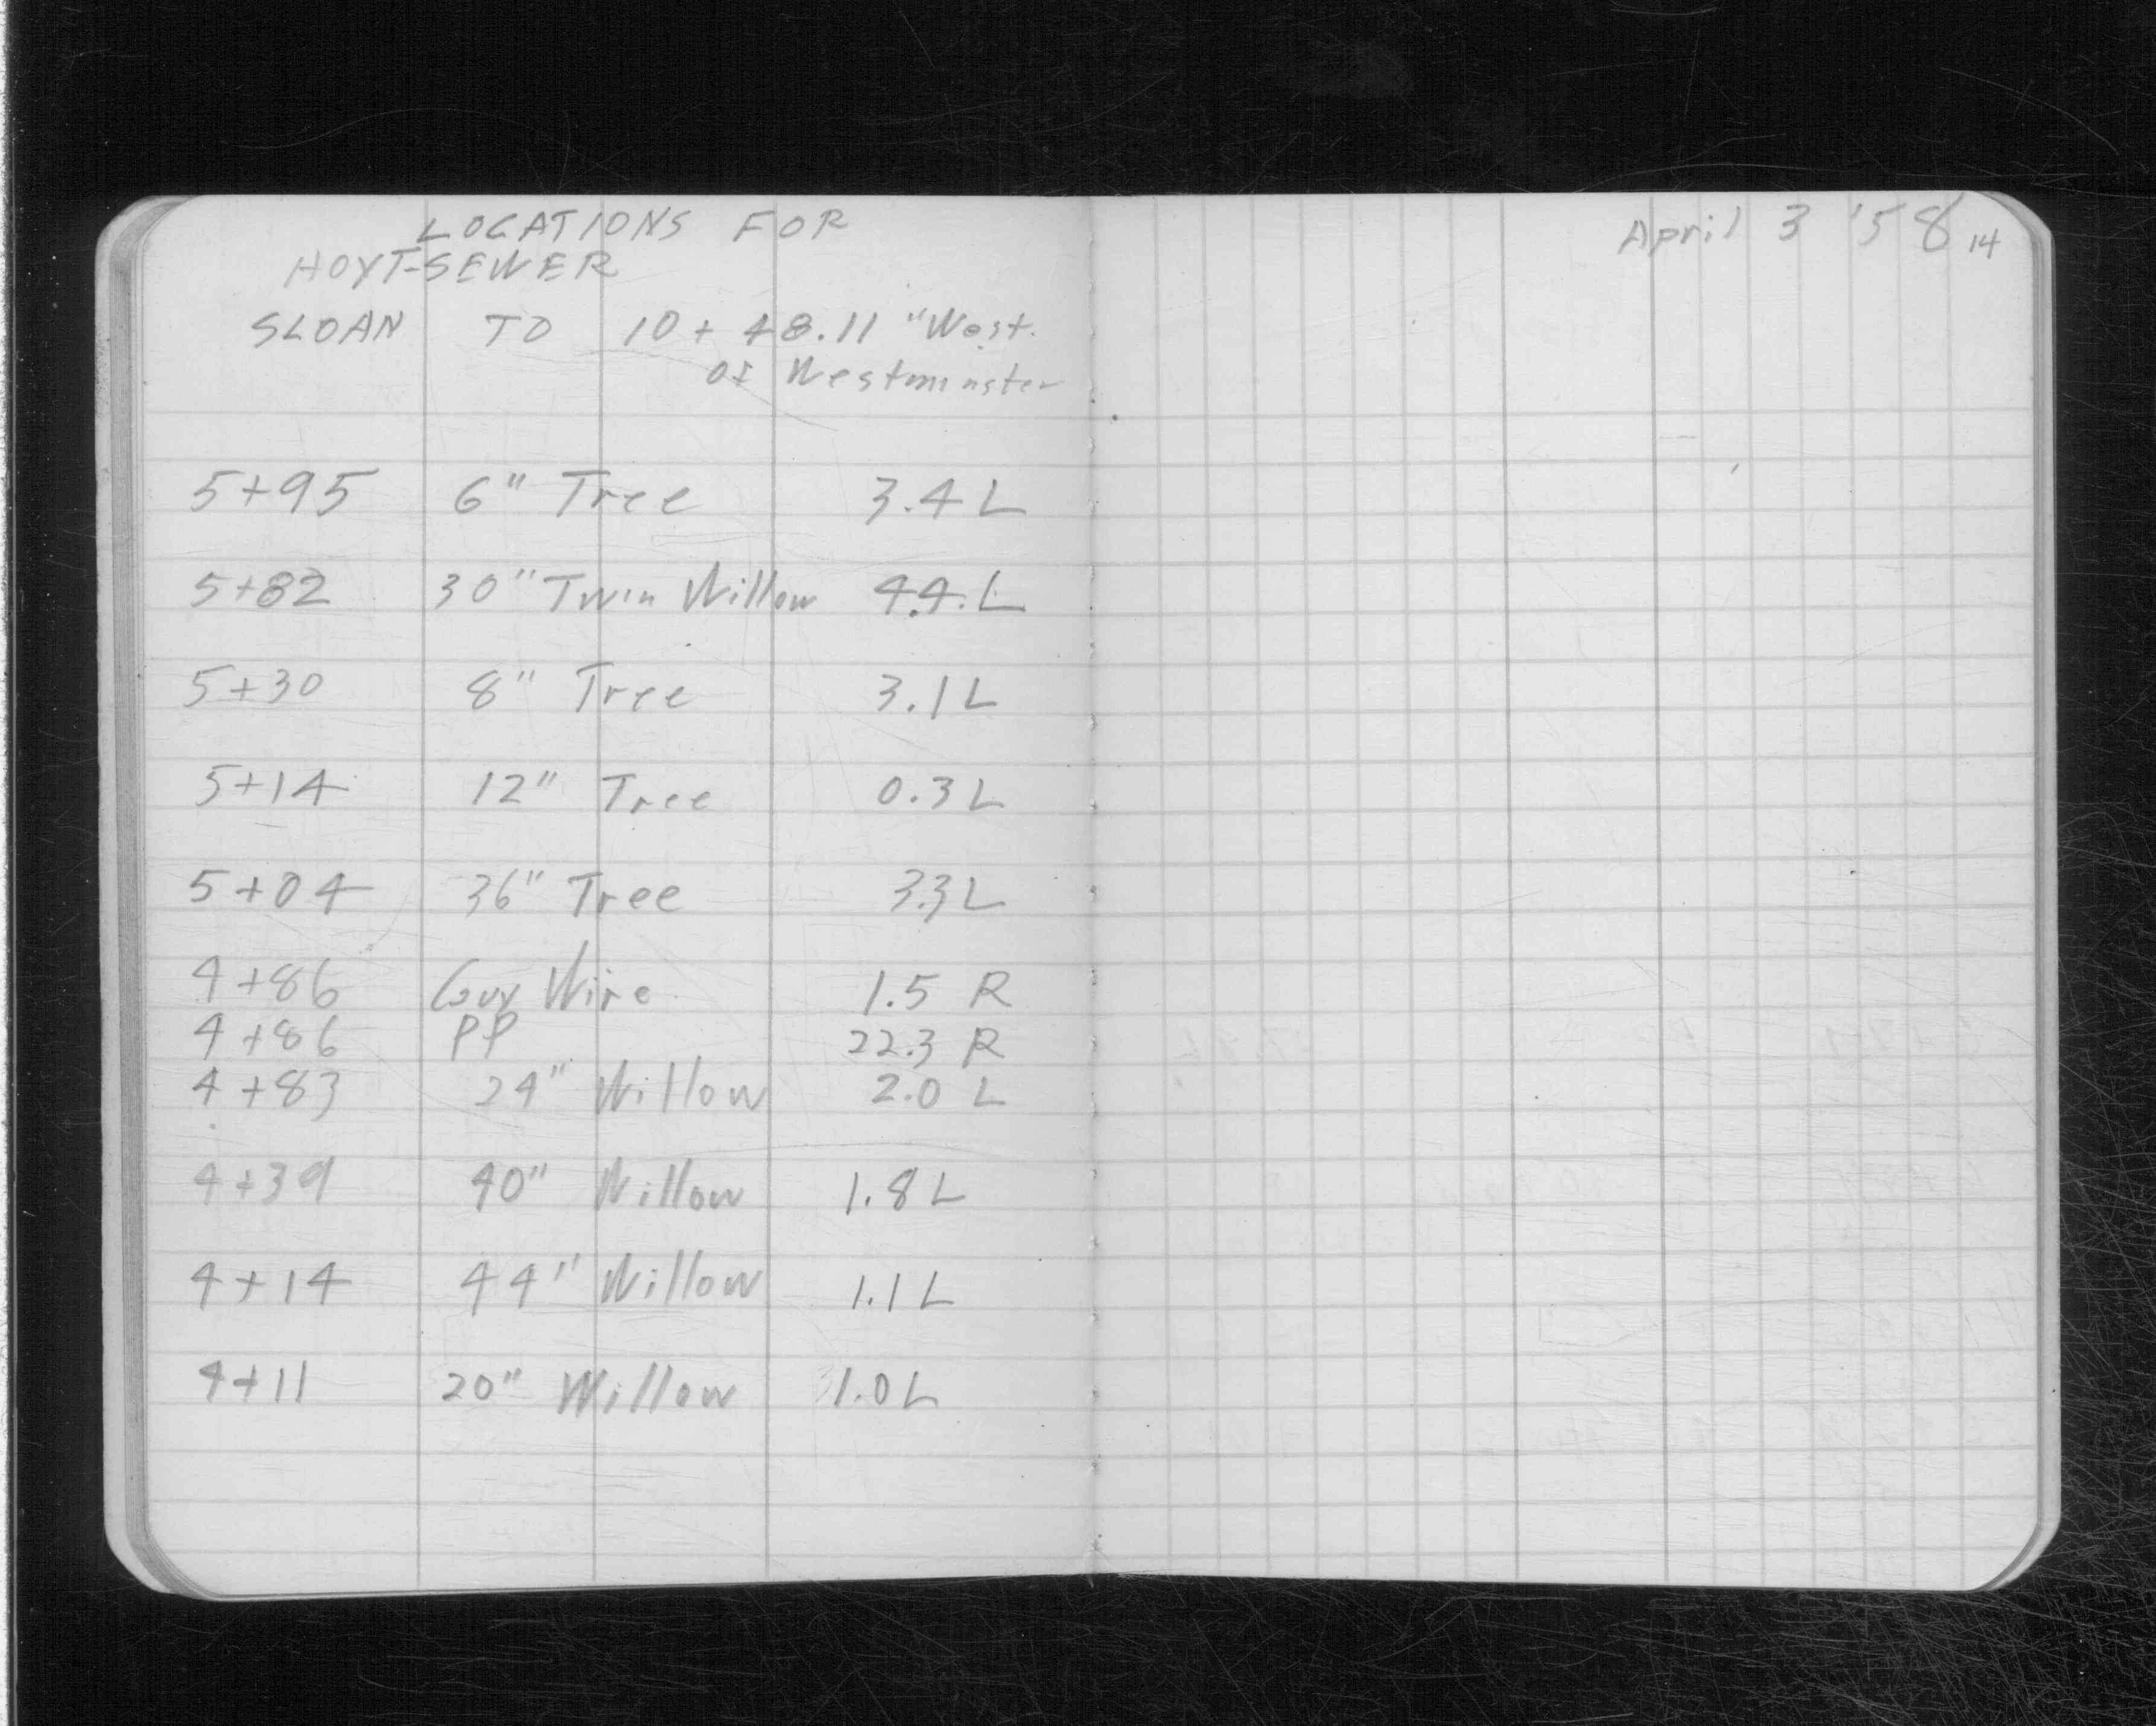 LOCATIONS FOR
HOYT-SEWER
SLOAN TO 10+48.11 "West.
of Westminster
5+95 6" Tree 3.4 L
5+82 30" Twin Willow 4.4. L
5+30 8" Tree 3.1 L
5+14 12" Tree 0.3 L
5+04 36" Tree 3.3 L
4+86 Guy Wire 1.5 R
4+86 PP 22.3 R
4+83 24" Willow 2.0 L
4+39 40" Willow 1.8 L
4+14 44" Willow 1.1 L
4+11 20" Willow 1.0 L
April 3 '58 14